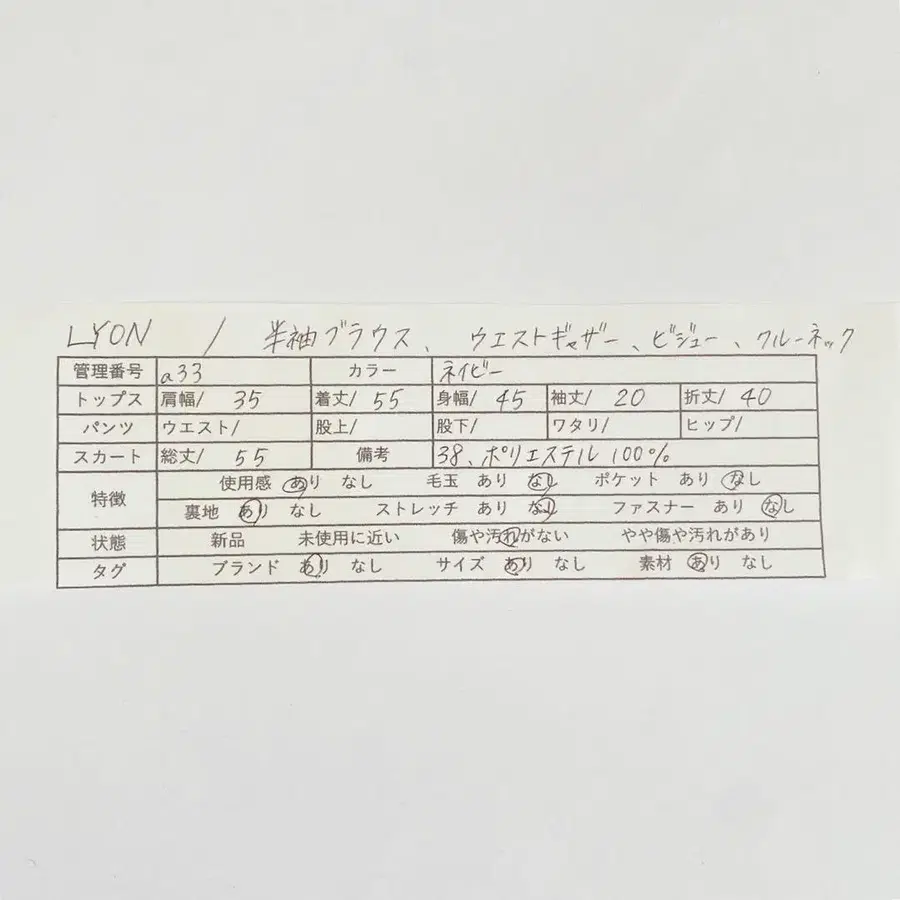 LYON / 半袖ブラウス、ウエストギャザー、ビジュー、クルーネック
管理番号 a33 カラー ネイビー
トップス 肩幅/ 35 着丈/ 55 身幅/ 45 袖丈/ 20 折丈/ 40
パンツ ウエスト/ 股上/ 股下/ ワタリ/ ヒップ/
スカート 総丈/ 55 備考 38、ポリエステル 100%
特徴 使用感 あり なし 毛玉 あり なし ポケット あり なし
裏地 あり なし ストレッチ あり なし ファスナー あり なし
状態 新品 未使用に近い 傷や汚れがない やや傷や汚れがあり
タグ ブランド あり なし サイズ あり なし 素材 あり なし